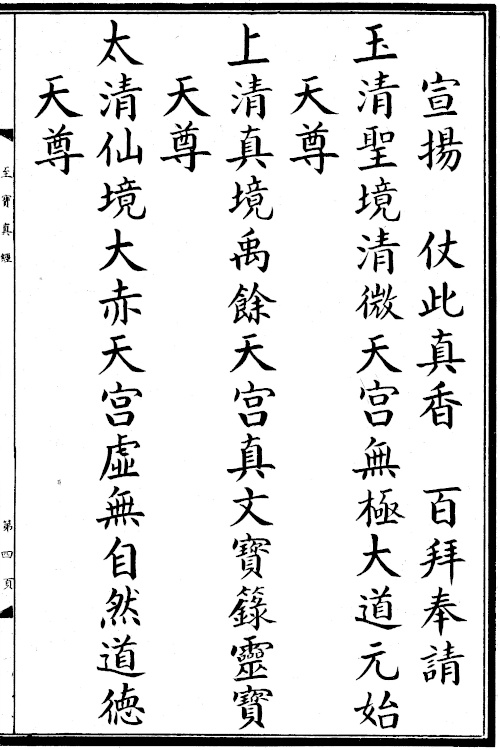 宣揚　仗此真香　百拜奉請
玉清聖境清微天宮無極大道元始
天尊
上清真境禹餘天宮真文寶籙靈寶
天尊
太清仙境大赤天宮虛無自然道德
天尊
至寶真經
第四頁